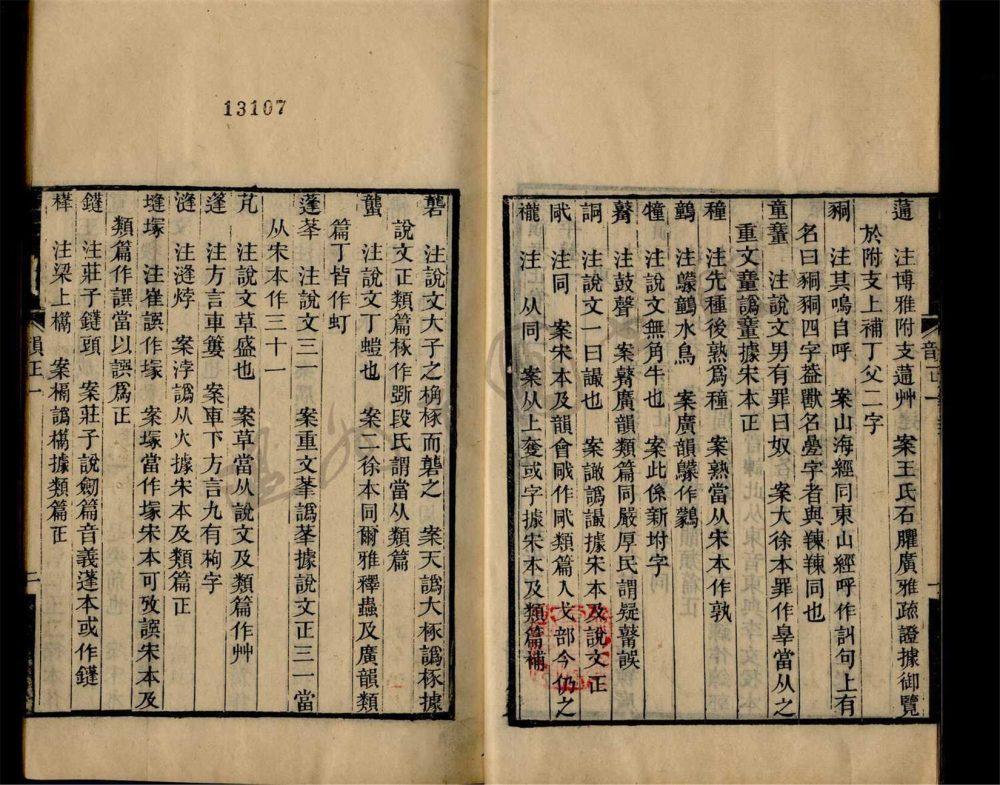 蓪　注博雅附支蓪艸　案王氏石臞廣雅疏證據御覽
於附支上補丁父二字
狪　注其鳴自呼　案山海經同東山經呼作訆句上有
名曰狪狪四字葢獸名疊字者與䍶䍶同也
童䇂　注說文男有罪曰奴　案大徐本罪作辠當从之
重文䇂譌童據宋本正
穜　注先種後熟爲穜　案熟當从宋本作孰
鸏　注鸏鶴水鳥　案廣韻鸏作鸏
犝　注說文無角牛也　案此係新坿字
鼟　注鼓聲　案鼟廣韻類篇同嚴厚民謂疑鼞誤
詷　注說文一曰譀也　案譀譌讝據宋本及說文正
㦴　注同　案宋本及韻會㦴作㦴類篇入戈部今仍之
襱　注　从同　案从上奪或字據宋本及類篇補
13107
礱　注說文大子之桷椓而礱之　案天譌大椓譌椓據
說文正類篇椓作斲段氏謂當从類篇
蠪　注說文丁螘也　案二徐本同爾雅釋蟲及廣韻類
篇丁皆作虰
蓬莑　注說文三一　案重文莑譌莑據說文正三一當
从宋本作三十一
芃　注說文草盛也　案草當从說文及類篇作艸
篷　注方言車簍也　案車下方言九有枸字
漨　注漨㶿　案浡譌从火據宋本及類篇正
塳塜　注崔誤作塜　案塜當作塚宋本可攷誤宋本及
類篇作譔當以誤爲正
鏠　注莊子鏠頭　案莊子說劒篇音義蓬本或作鏠
桻　注梁上橗　案榾譌橗據類篇正
韻正一
二